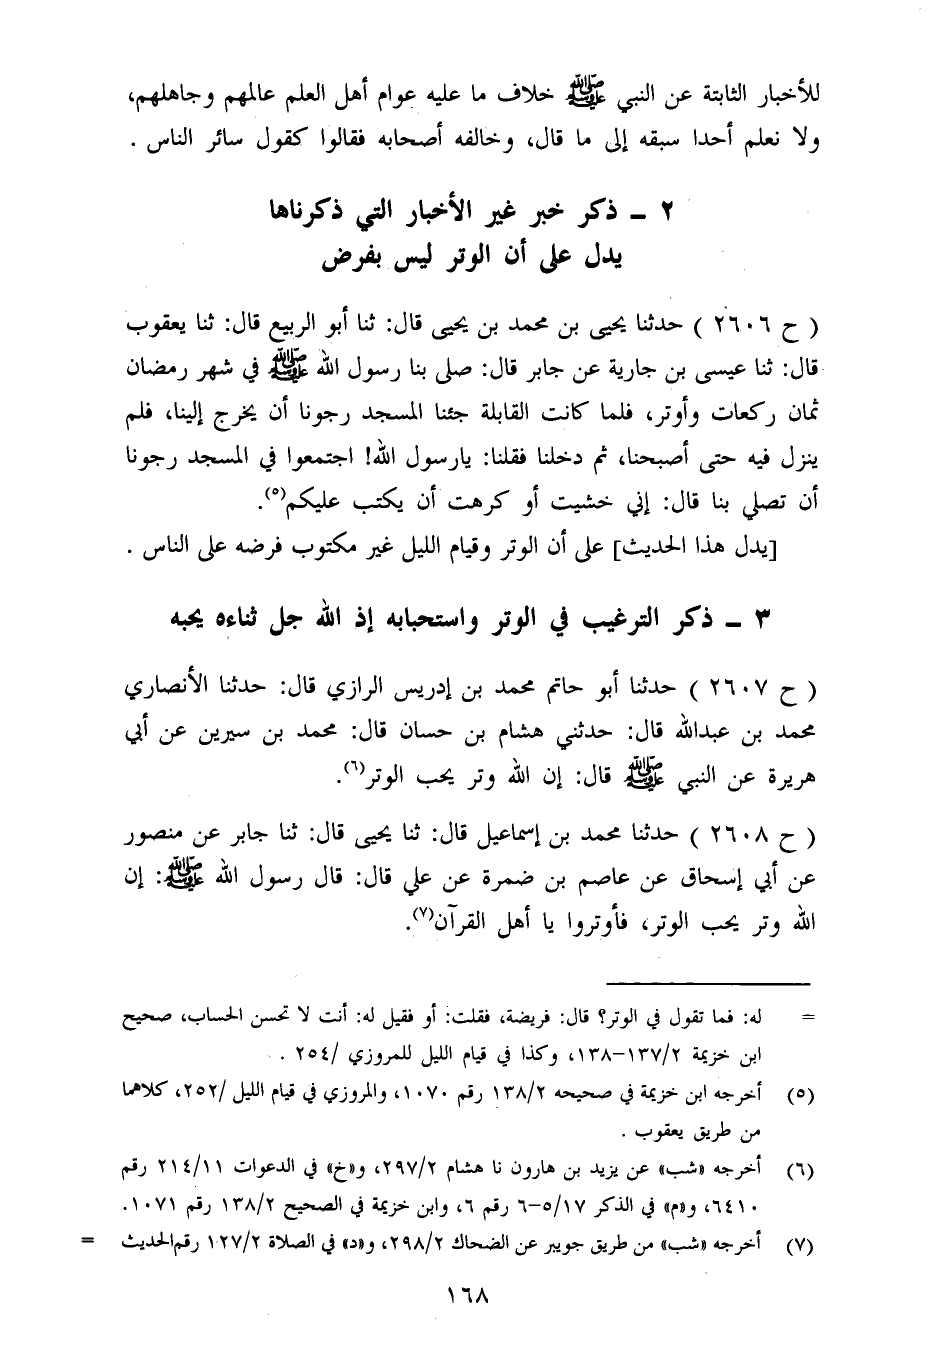 للأخبار الثابتة عن النبي ﷺ خلاف ما عليه عوام أهل العلم عالمهم وجاهلهم،
ولا نعلم أحدا سبقه إلى ما قال، وخالفه أصحابه فقالوا كقول سائر الناس .
٢ ـ ذكر خبر غير الأخبار التي ذكرناها
يدل على أن الوتر ليس بفرض
( ح ٢٦٠٦ ) حدثنا يحيى بن محمد بن يحيى قال: ثنا أبو الربيع قال: ثنا يعقوب
قال: ثنا عيسى بن جارية عن جابر قال: صلى بنا رسول الله ﷺ في شهر رمضان
ثمان ركعات وأوتر، فلما كانت القابلة جئنا المسجد رجونا أن يخرج إلينا، فلم
ينزل فيه حتى أصبحنا، ثم دخلنا فقلنا: يارسول الله! اجتمعوا في المسجد رجونا
أن تصلي بنا قال: إني خشيت أو كرهت أن يكتب عليكم(٥).
[يدل هذا الحديث] على أن الوتر وقيام الليل غير مكتوب فرضه على الناس .
٣ ـ ذكر الترغيب في الوتر واستحبابه إذ الله جل ثناءه يحبه
( ح ٢٦٠٧ ) حدثنا أبو حاتم محمد بن إدريس الرازي قال: حدثنا الأنصاري
محمد بن عبدالله قال: حدثني هشام بن حسان قال: محمد بن سيرين عن أبي
هريرة عن النبي ﷺ قال: إن الله وتر يحب الوتر(٦).
( ح ٢٦٠٨ ) حدثنا محمد بن إسماعيل قال: ثنا يحيى قال: ثنا جابر عن منصور
عن أبي إسحاق عن عاصم بن ضمرة عن علي قال: قال رسول الله ﷺ: إن
الله وتر يحب الوتر، فأوتروا يا أهل القرآن(٧).
= له: فما تقول في الوتر؟ قال: فريضة، فقلت: أو فقيل له: أنت لا تحسن الحساب، صحيح
ابن خزيمة ١٣٧/٢–١٣٨، وكذا في قيام الليل للمروزي /٢٥٤ .
(٥) أخرجه ابن خزيمة في صحيحه ١٣٨/٢ رقم ١٠٧٠، والمروزي في قيام الليل /٢٥٢، كلاهما
من طريق يعقوب .
(٦) أخرجه «شب» عن يزيد بن هارون نا هشام ٢٩٧/٢، و«خ» في الدعوات ٢١٤/١١ رقم
٦٤١٠، و«م» في الذكر ٥/١٧–٦ رقم ٦، وابن خزيمة في الصحيح ١٣٨/٢ رقم ١٠٧١.
(٧) أخرجه «شب» من طريق جويبر عن الضحاك ٢٩٨/٢، و«د» في الصلاة ١٢٧/٢ رقم الحديث =
١٦٨